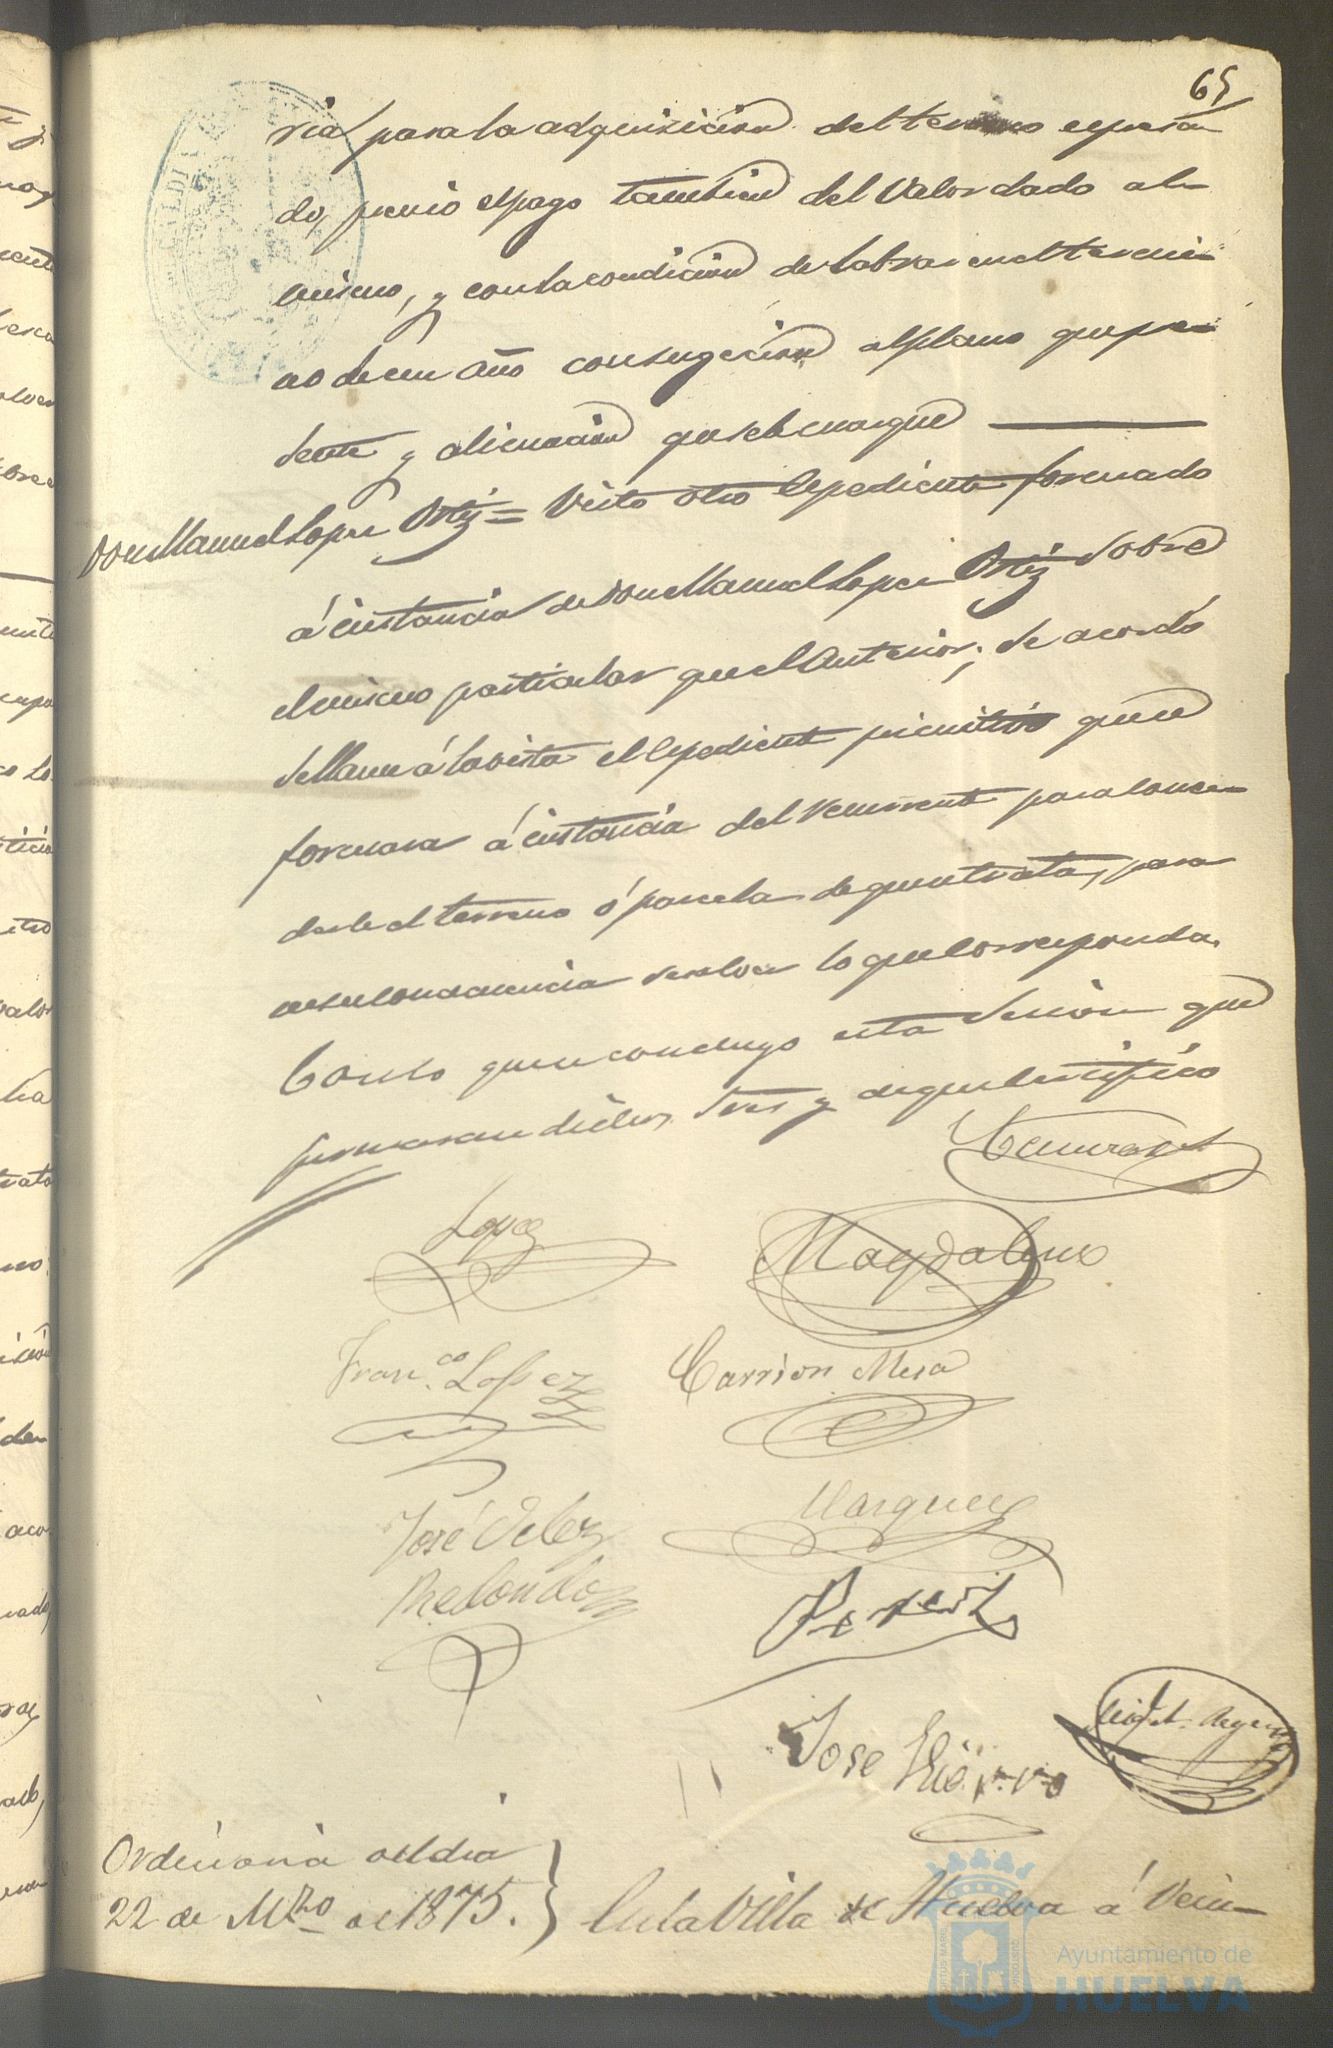 65
ria para la adquisicion del terreno espresa
do, previo el pago tambien del valor dado al
mismo, y con la condicion de labrar en el termi-
no de un año con sugecion al plano que pre-
sente y alineacion que se le marque
Don Manuel Lopez Ortiz = Visto otro Espediente formado
á instancia de Don Manuel Lopez Ortiz sobre
el mismo particular que el anterior; se acordó
se llame á la vista el Espediente primitivo que se
formara á instancia del recurrente para conce-
derle el terreno ó parcela de que se trata, para
en su consecuencia resolver lo que corresponda.
Con lo que se concluyo esta Sesion que
firmaran dichos Sres y de que certifico
Lopez
Magdaleno
Franco. Lopez
Carrion Mesa
José Velez
Redondo
Marquez
Jose Hierro
Ordinaria del dia
22 de Mzo de 1875. } En la Villa de Huelva á Vein-
Ayuntamiento de
HUELVA